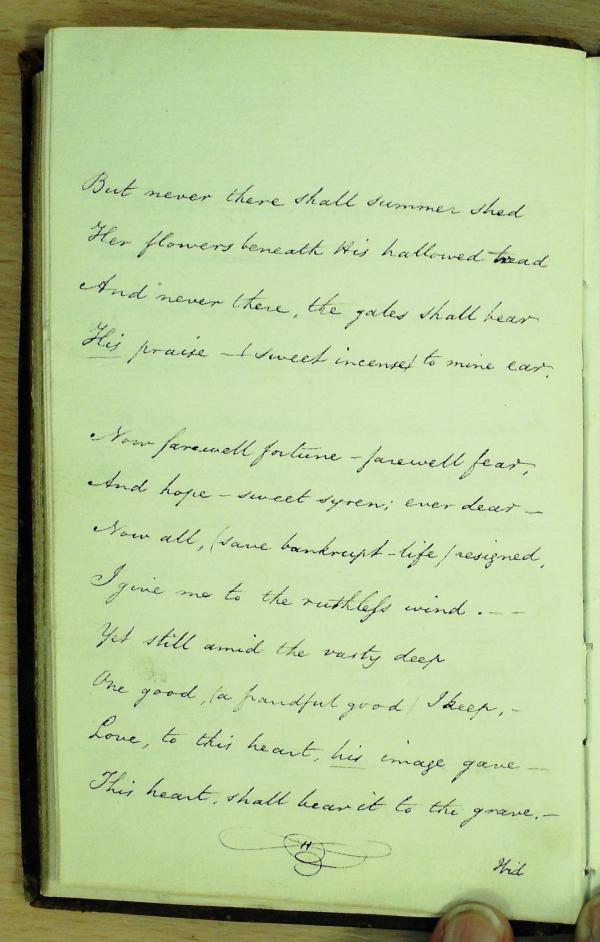 But never there shall summer shed
Her flowers beneath His hallowed tread
And never there, the gales shall bear
His praise – (sweet incense) to mine ear.
Now farewell fortune – farewell fear,
And hope – sweet syren; ever dear –
Now all, (save bankrupt-life) resigned,
I give me to the ruthless wind. – –
Yet still amid the vasty deep
One good, (a handful good) I keep, –
Love, to this heart, his image gave –
This heart, shall bear it to the grave. –
H
Ibid